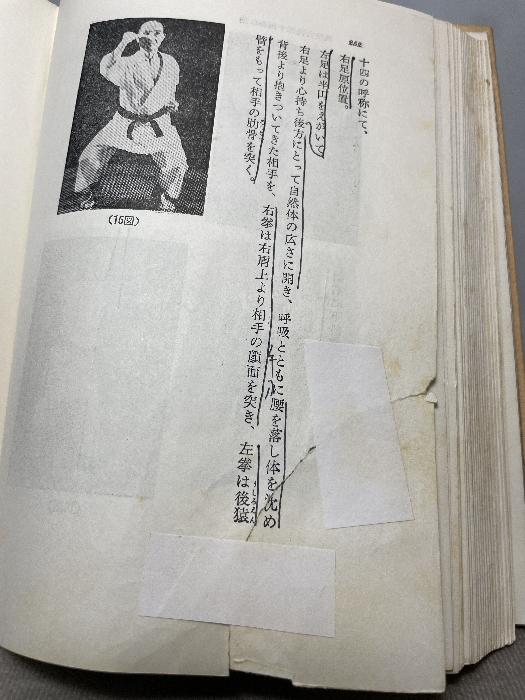 十四の呼称にて、
右足原位置。
左足は半円をえがいて
右足より心持ち後方にとって自然体の広さに開き、呼吸とともに腰を落し体を沈め
背後より抱きついてきた相手を、右拳は右肩上より相手の顔面を突き、左拳は後猿
うしろえん
臂をもって相手の肋骨を突く。
(15図)